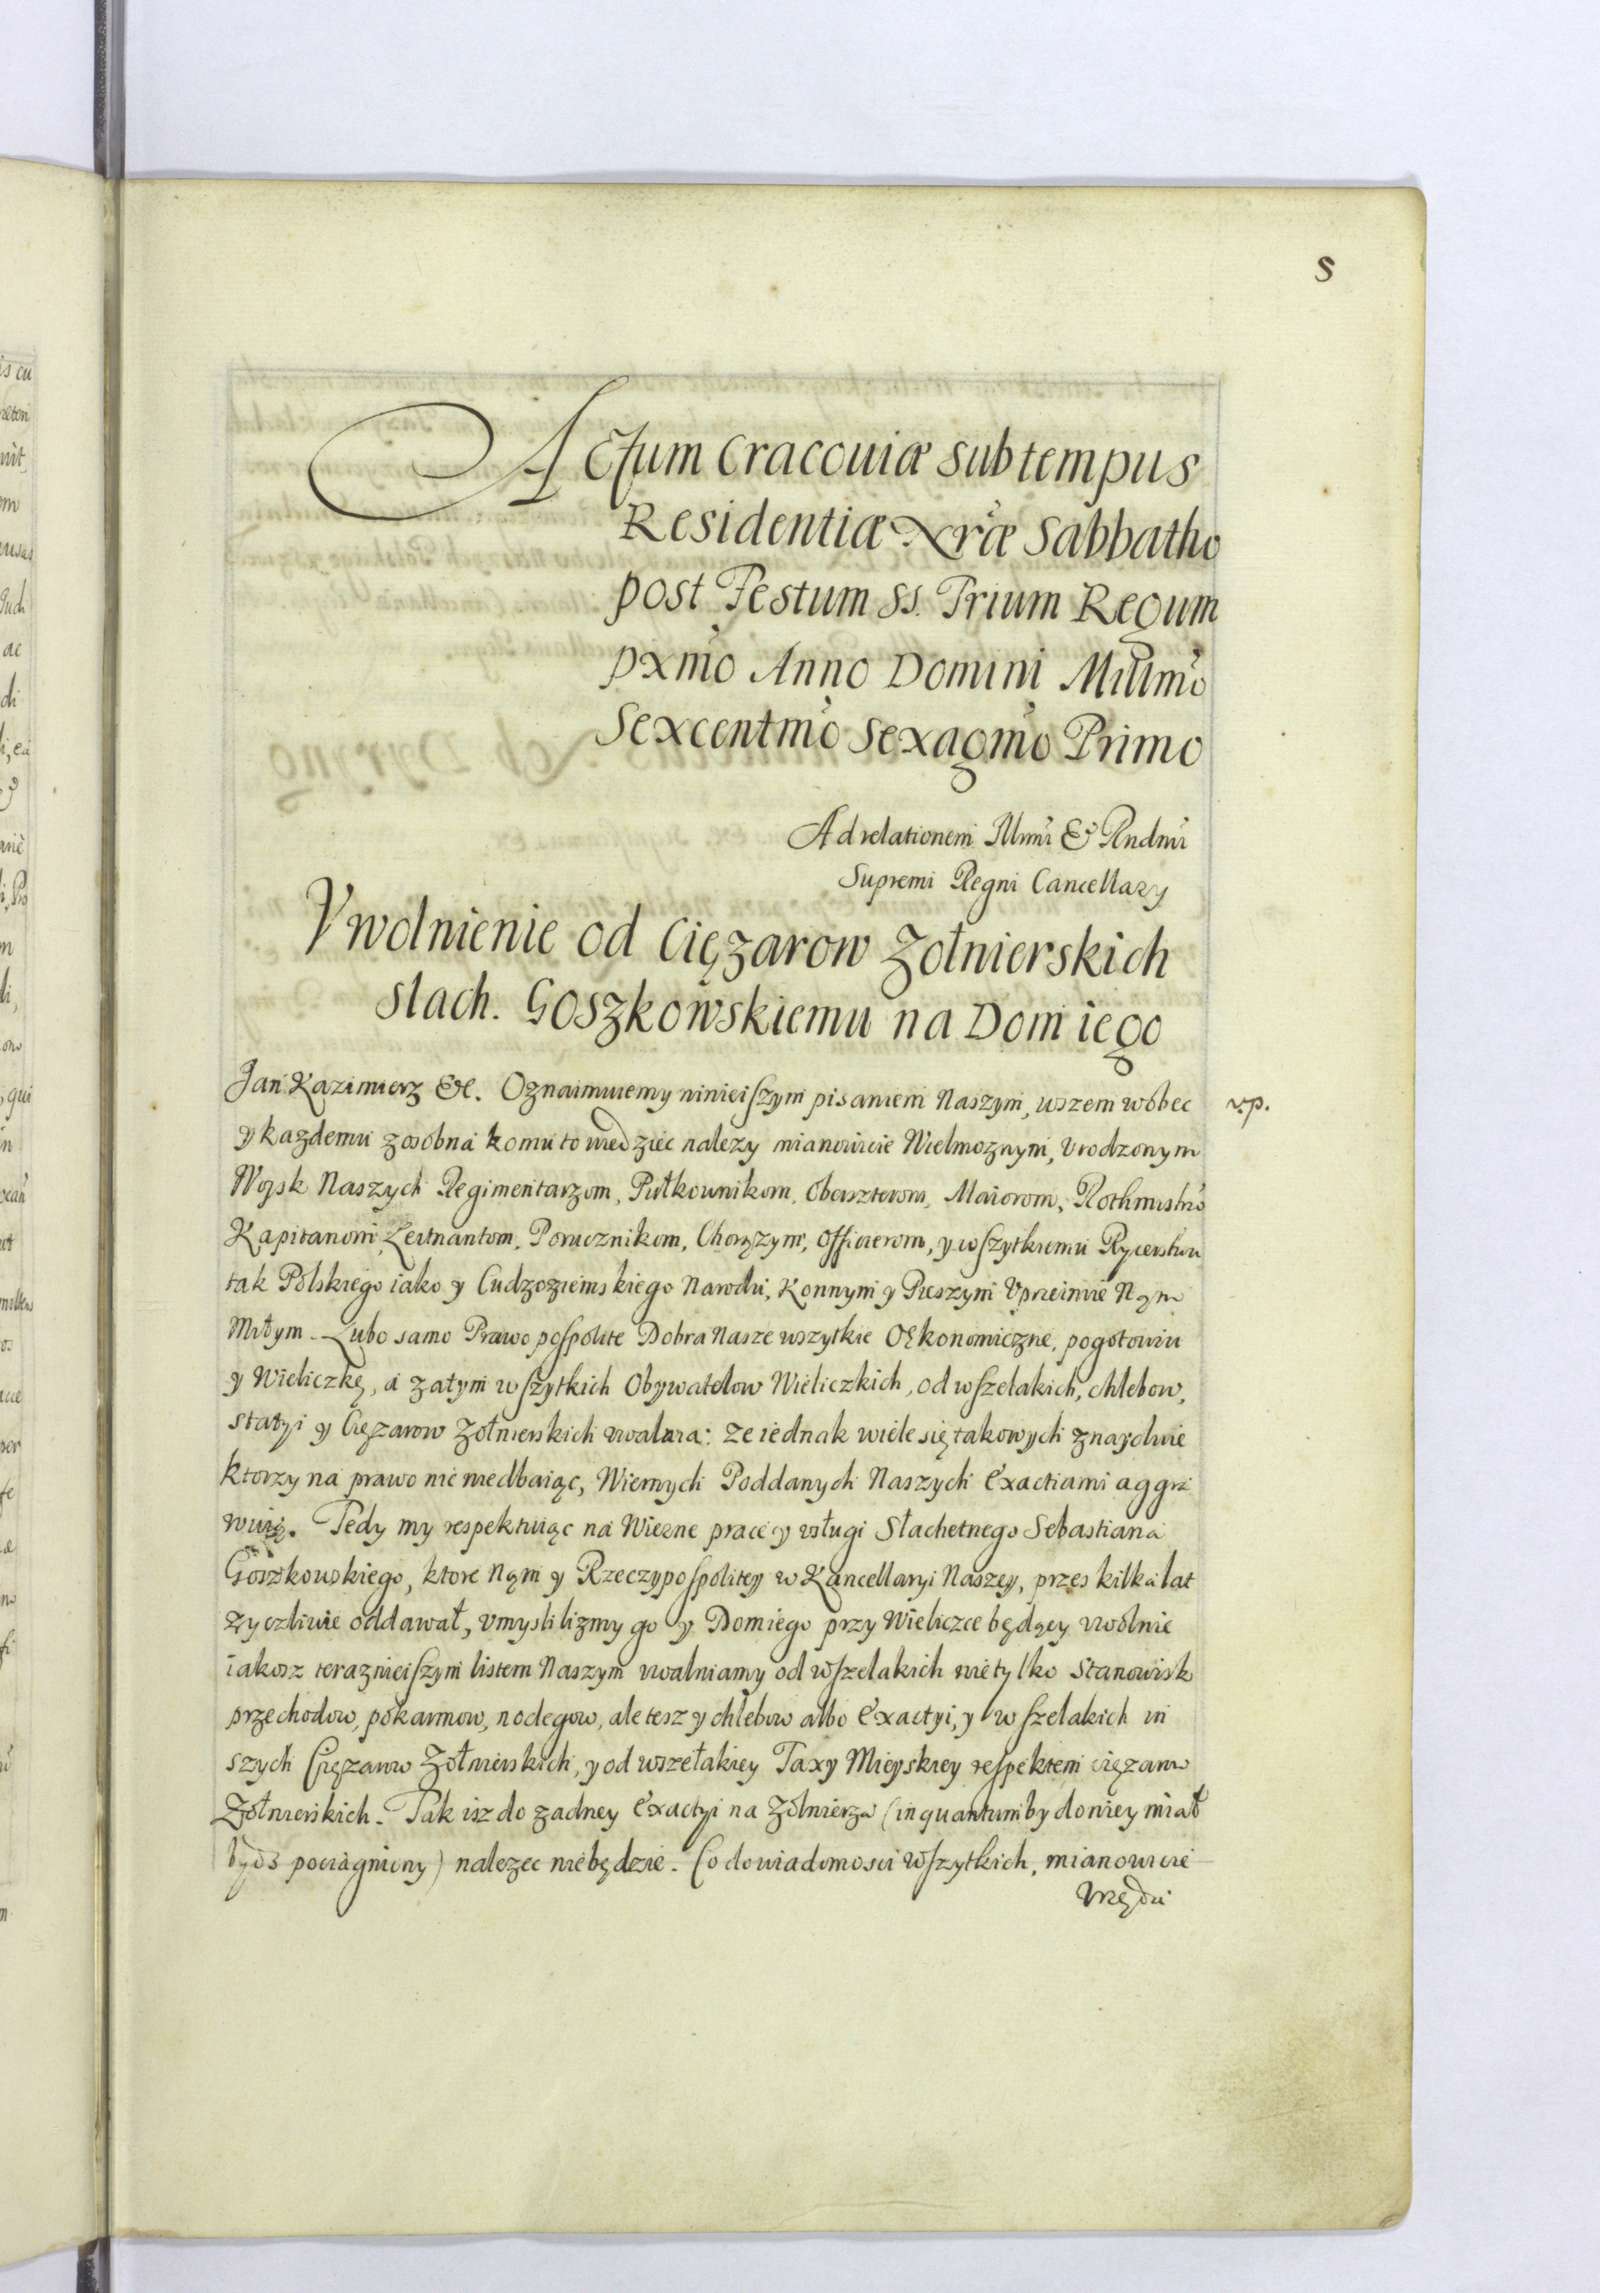 5
Actum Cracouiæ sub tempus
Residentiæ Nræ Sabbatho
post Festum SS. Trium Regum
pxmo Anno Domini Millmo
Sexcentmo Sexagmo Primo
Ad relationem Illmi & Rndmi
Supremi Regni Cancellary
Vwolnienie od Ciężarow Zołnierskich
Slach. Goszkowskiemu na Dom iego
Jan Kazimierz &c. Oznaimuiemy ninieiszym pisaniem Naszym, wszem wobec
y kazdemu zosobna komu to wiedziec nalezy mianowicie Wielmoznym, Vrodzonym
Woysk Naszych Regimentarzom, Pułkownikom, Oberszterom, Maiorom, Rothmistrō
Kapitanom, Leitnantom, Porucznikom, Chorązym, Officierom, y wszytkiemu Rycerstwu
tak Polskiego iako y Cudzoziemskiego Narodu, Konnym y Pieszym Vprzeimie Nąm
Miłym. Lubo samo Prawo pospolite Dobra Nasze wszytkie Oekonomiczne, pogotowiu
y Wieliczkę, a zatym wszytkich Obywatelow Wieliczkich, od wszelakich, chlebow,
statyi y Ciężarow Zołnierskich uwalnia: ze iednak wiele się takowych znayduie
ktorzy na prawo nic niedbaiąc, Wiernych Poddanych Naszych Exactiami aggra
wuią. Tedy my respektuiąc na Wierne prace y usługi Słachetnego Sebastiana
Goszkowskiego, ktore Nąm y Rzeczypospolitey w Kancellaryi Naszey, przes kilka lat
zyczliwie oddawał, vmyslilizmy go y Dom iego przy Wieliczce będący vwolnić
iakosz teraznieiszym listem Naszym uwalniamy od wszelakich nietylko Stanowisk
przechodow, pokarmow, noclegow, ale tesz y chlebow albo Exactyi, y wszelakich in
szych Ciężarow Zołnierskich, y od wszelakiey Taxy Mieyskiey respektem ciężarow
Zołnierskich. Tak isz do zadney Exactyi na Zołnierza (in quantum by do niey miał
bydz pociągniony) nalezec niebędzie. Co do wiadomosci Wszytkich, mianowicie
Vrzędu